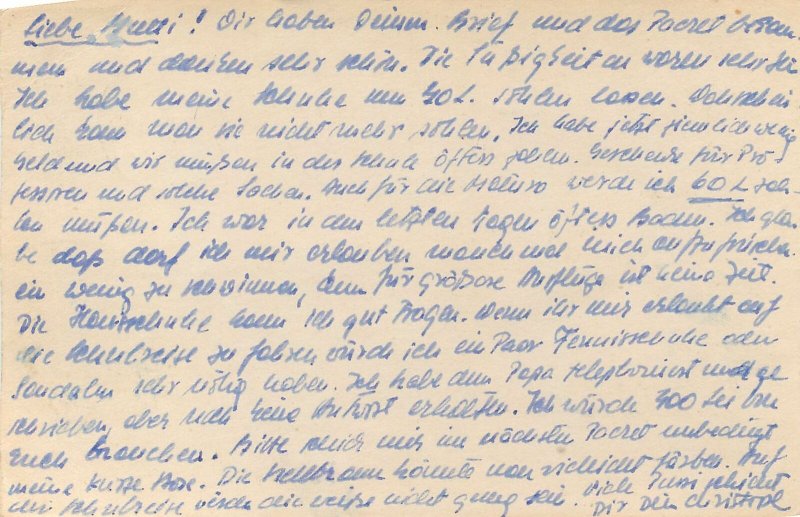 Liebe Mutti! Wir haben Deinen Brief und das Packet bekom-
men und danken sehr schön. Die Süßigkeiten waren sehr fei
Ich habe meine Schuhe um 40 L. sohlen lassen. Wahrschein
lich kann man sie nicht mehr sohlen. Ich habe jetzt ziemlich wenig
Geld und wir müßen in der Schule öfters geben. Geschenke für Pro-
fessoren und solche Sachen. Auch für die Matura werde ich 60 L zah-
len müßen. Ich war in den letzten Tagen öfters Baden. Ich glau-
be daß darf ich mir erlauben manchmal mich aufzufrischen.
ein wenig zu schwimmen, denn für größere Ausflüge ist keine Zeit.
Die Hausschuhe kann ich gut tragen. Wenn ihr mir erlaubt auf
die Schulreise zu fahren würde ich ein Paar Tennisschuhe oder
Sandalen sehr nötig haben. Ich habe dem Papa telephoniert und ge
schrieben, aber noch keine Antwort erhalten. Ich würde 300 Lei von
Euch brauchen. Bitte schick mir im nächsten Packet unbedingt
meine kurze Hose. Die könnte man vielleicht färben. Auf
der Schulreise werden die weiße nicht genug sein. Viele Pussi schickt
Dir Dein Christoph